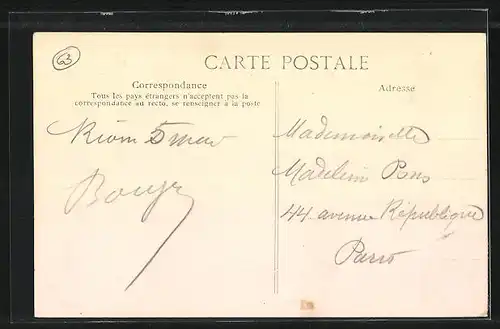 63
CARTE POSTALE
Correspondance
Tous les pays étrangers n'acceptent pas la
correspondance au recto, se renseigner à la poste
Adresse
Riom 5
Mademoiselle
Madelein Pons
44 avenue République
Paris